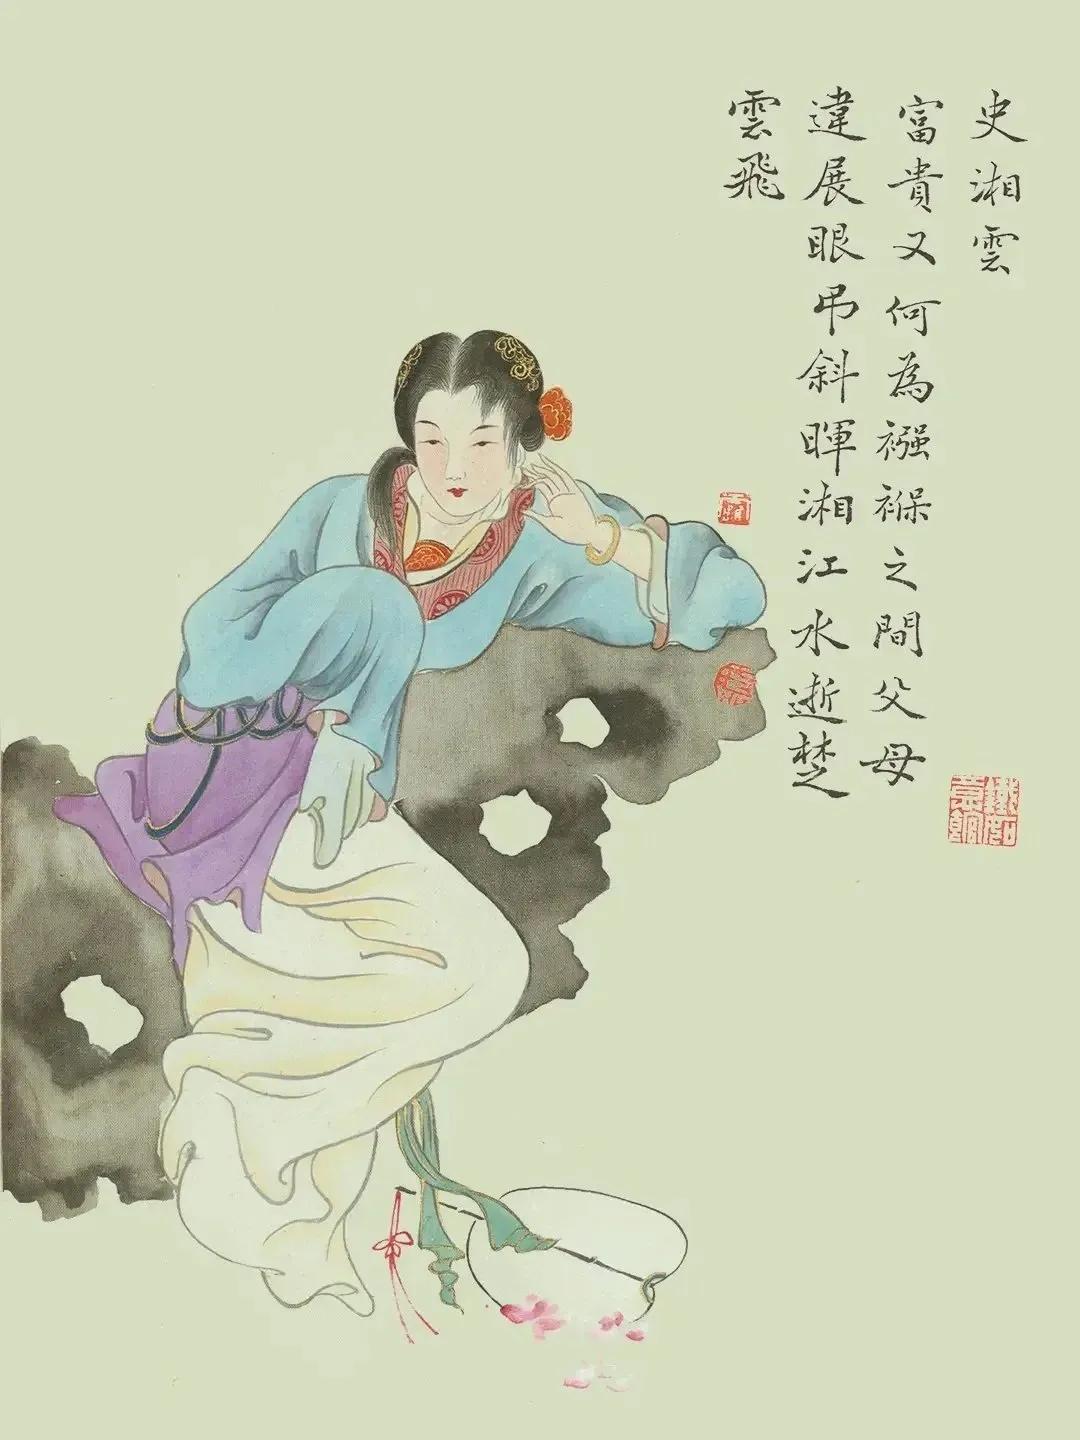 史湘雲
富貴又何為襁褓之間父母
違展眼弔斜暉湘江水逝楚
雲飛